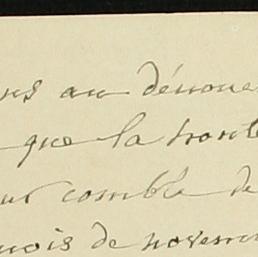 au dénoue
que la honte
comble de
mois de novem